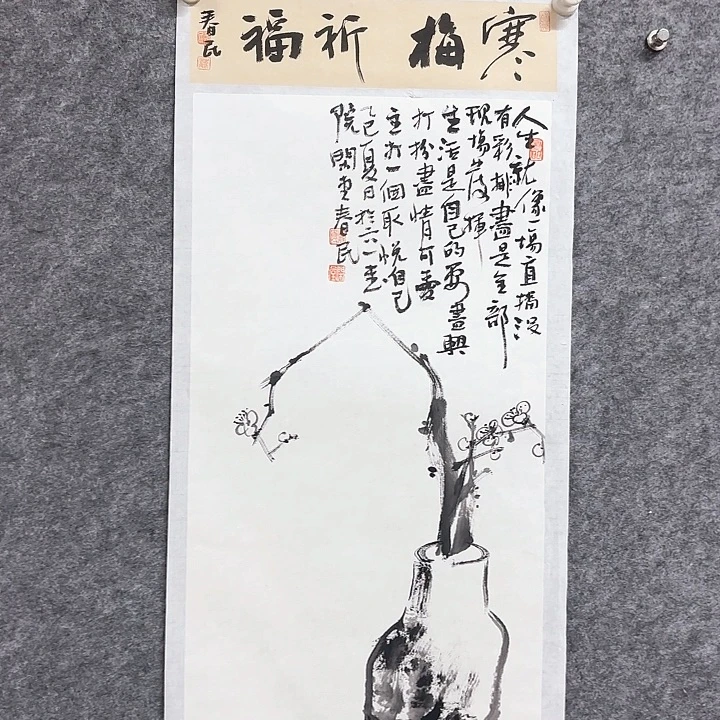 寒梅祈福
春民
人生就像一場直播没
有彩排盡是全部
現場發揮
生活是自己的要盡興
打扮盡情可愛
主打一個取悦自己
乙巳夏日於六一畫
院閑畫春民